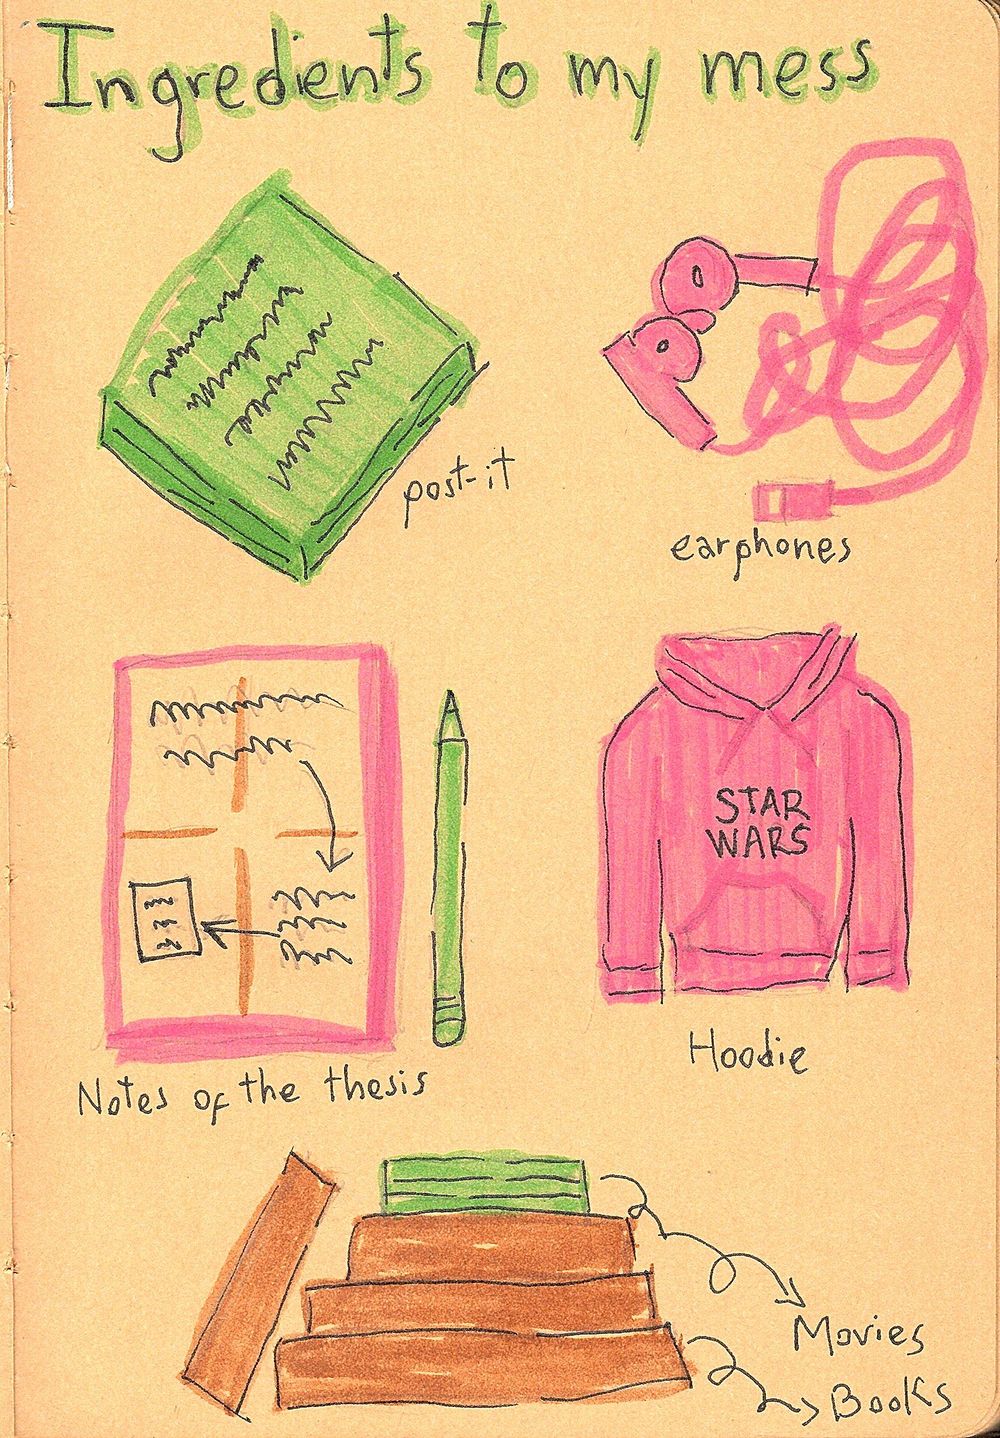 Ingredients to my mess
post-it
earphones
STAR
WARS
Notes of the thesis
Hoodie
Movies
Books